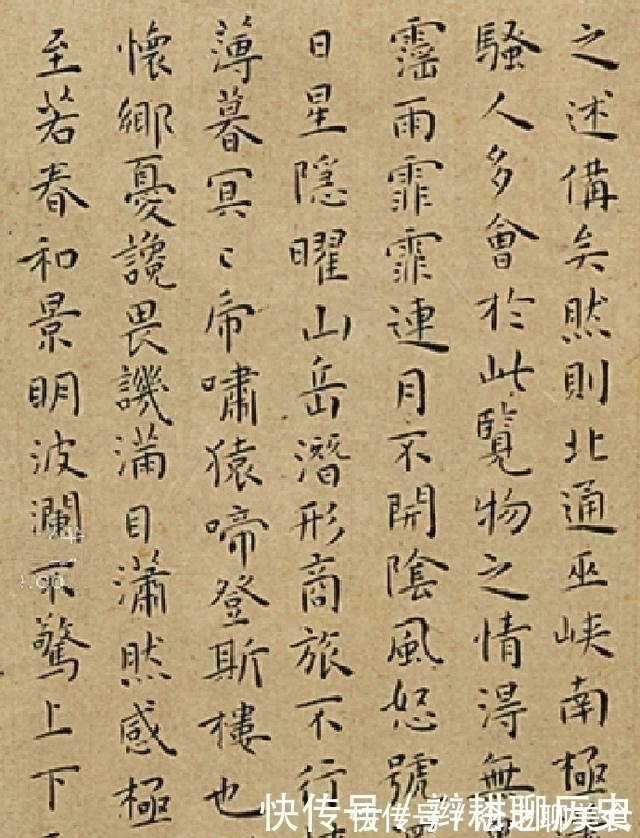 之述備矣然則北通巫峽南極
騷人多會於此覽物之情得無
霪雨霏霏連月不開陰風怒號
日星隱曜山岳潛形商旅不行
薄暮冥〻乕嘯猿啼登斯樓也
懷鄉憂讒畏譏滿目瀟然感極
至若春和景明波瀾不驚上下
快传号/辩耕聊历史